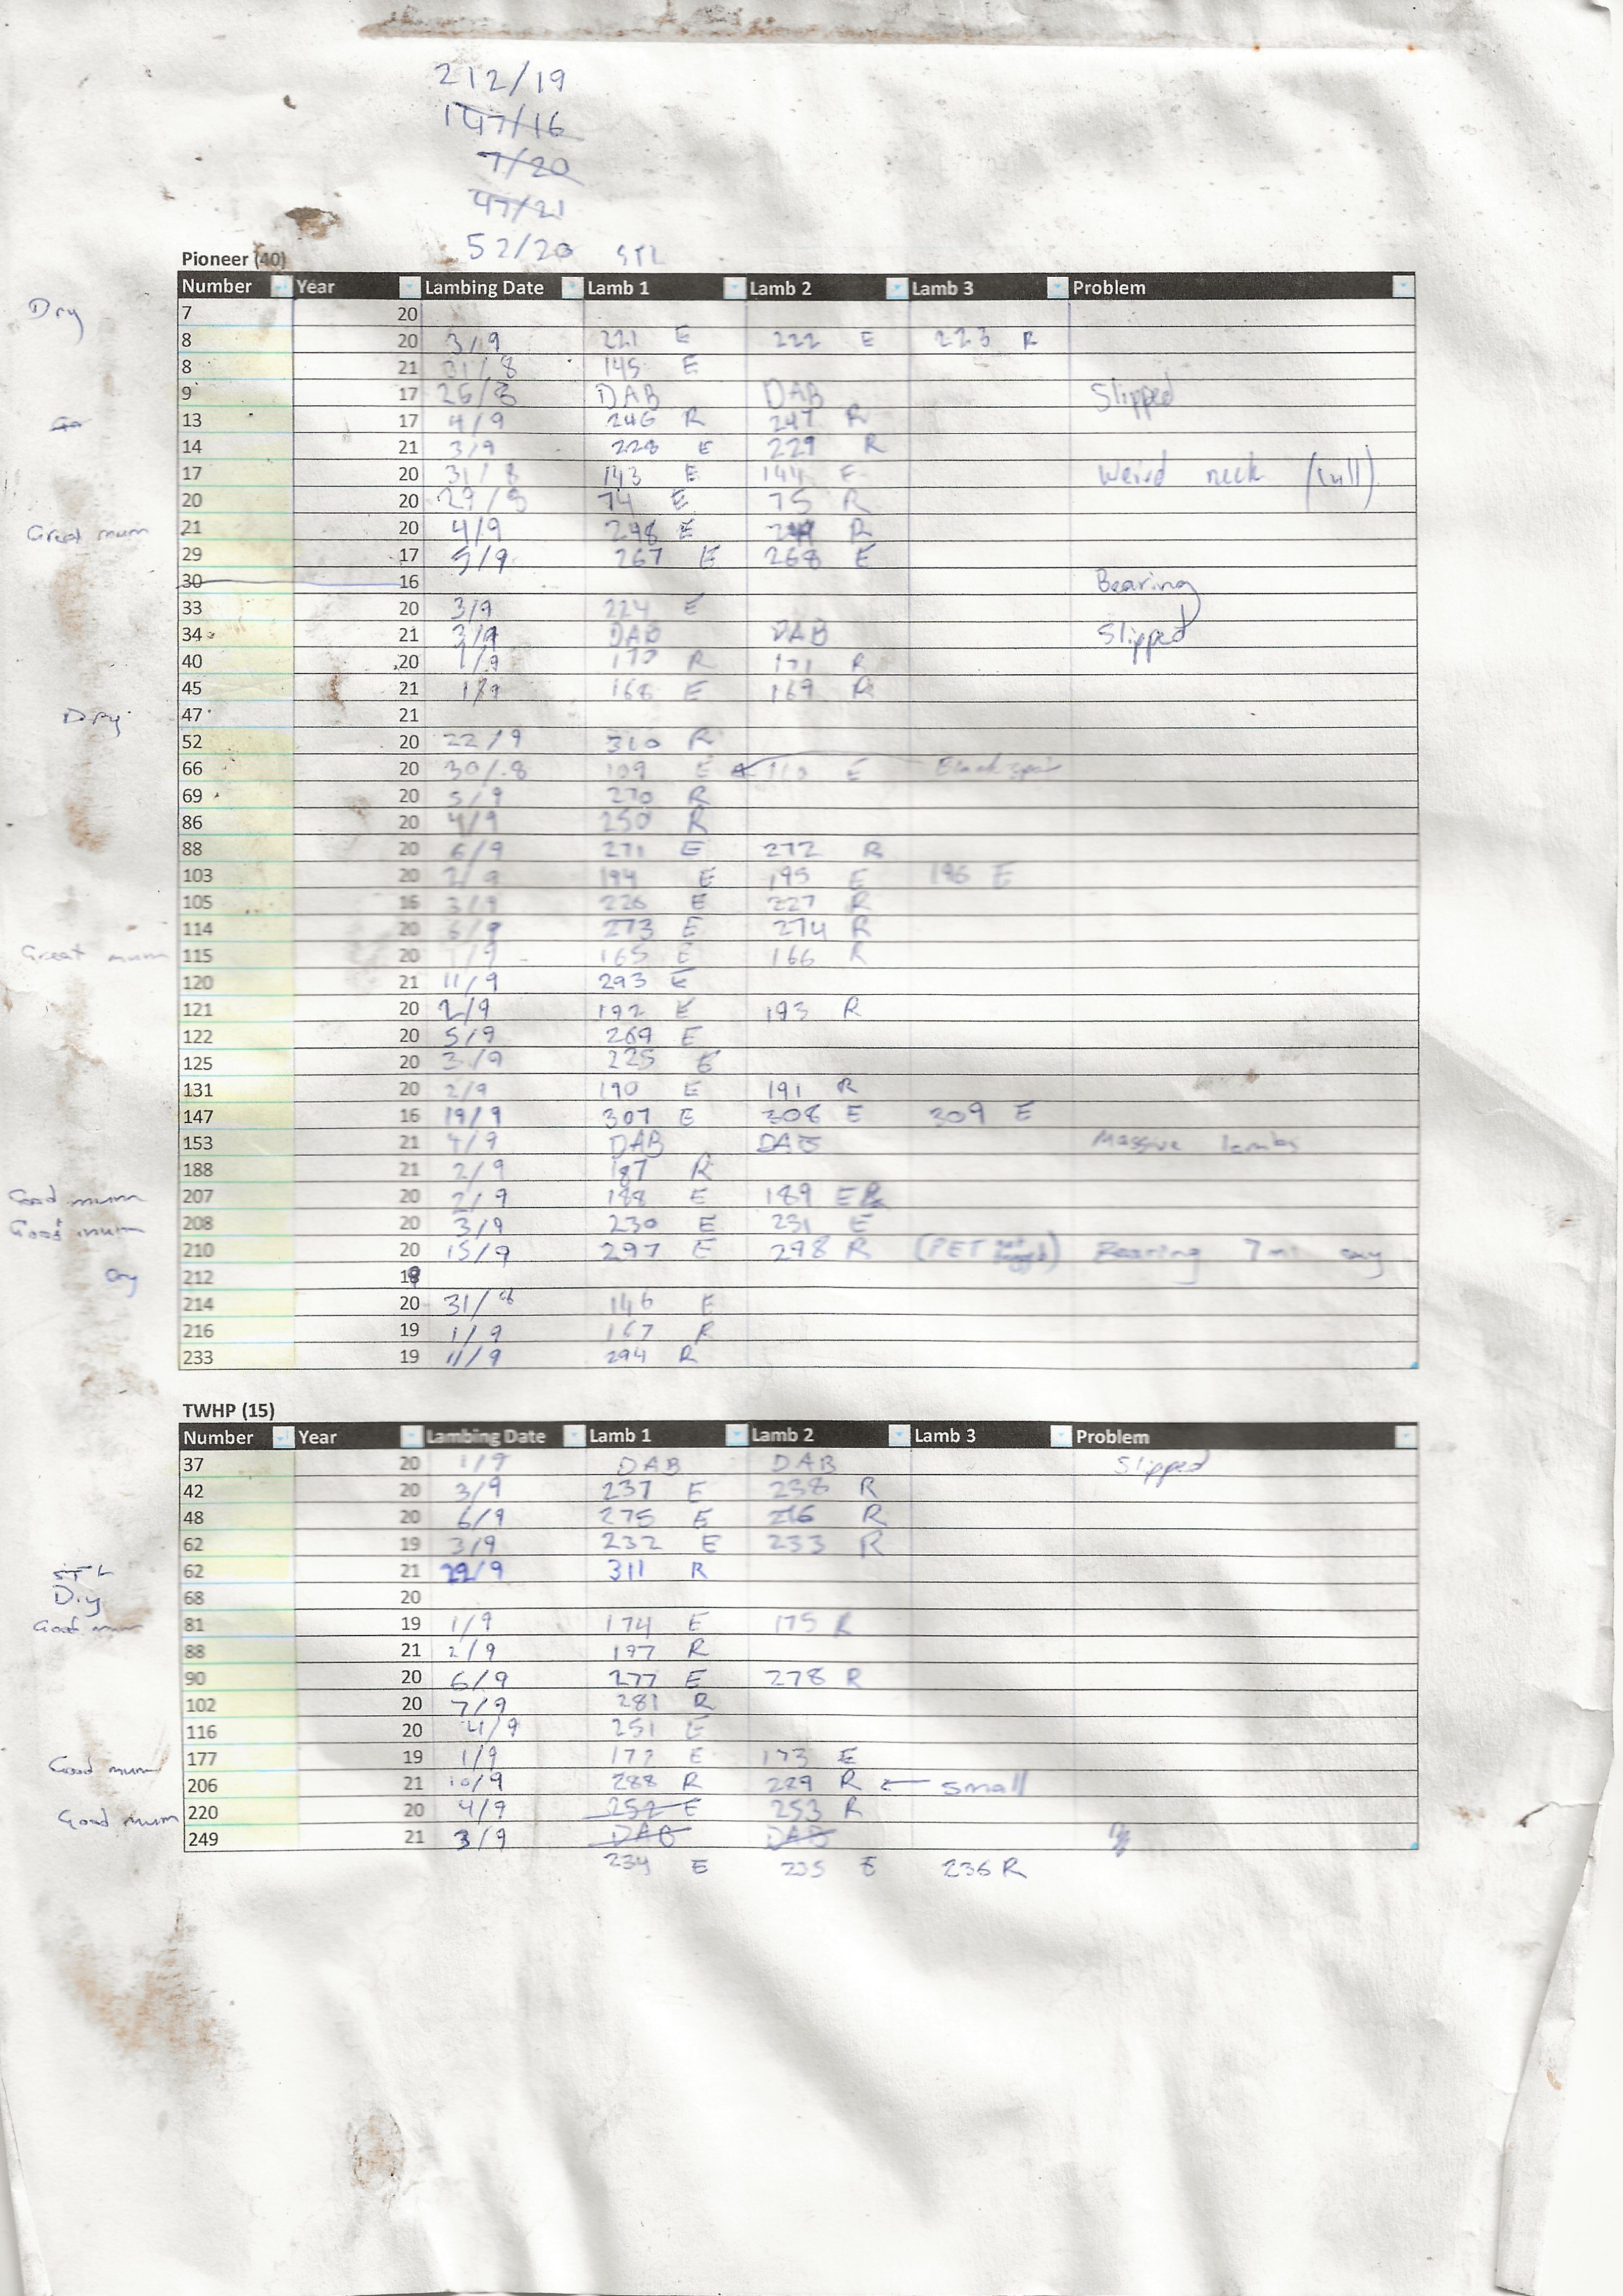 212/19
147/16
7/20
47/21
52/20 STL
Pioneer (40)
Number Year Lambing Date Lamb 1 Lamb 2 Lamb 3 Problem
Dry 7 20
8 20 3/9 221 E 222 E 223 R
8 21 31/8 145 E
9 17 26/8 DAB DAB Slipped
13 17 4/9 246 R 247 R
14 21 3/9 228 E 229 R
17 20 31/8 143 E 144 E Weird neck (cull)
20 20 29/8 74 E 75 R
Great mum 21 20 4/9 248 E R
29 17 5/9 267 E 268 E
30 16 Bearing
33 20 3/9 224 E
34 21 3/9 DAB DAB Slipped
40 20 1/9 170 R 171 R
45 21 1/9 168 E 169 R
Dry 47 21
52 20 22/9 310 R
66 20 30/8 109 E 110 E
69 20 5/9 270 R
86 20 4/9 250 R
88 20 6/9 271 E 272 R
103 20 2/9 194 E 195 E 196 E
105 16 3/9 226 E 227 R
114 20 6/9 273 E 274 R
Great mum 115 20 1/9 165 E 166 R
120 21 11/9 293 E
121 20 2/9 192 E 193 R
122 20 5/9 269 E
125 20 3/9 225 E
131 20 2/9 190 E 191 R
147 16 19/9 307 E 308 E 309 E
153 21 4/9 DAB DAB Massive lambs
188 21 2/9 187 R
Good mum 207 20 2/9 188 E 189 E
Good mum 208 20 3/9 230 E 231 E
210 20 15/9 297 E 298 R (PET not tagged) Bearing
Dry 212 19
214 20 31/8 146 E
216 19 1/9 167 R
233 19 11/9 294 R
TWHP (15)
Number Year Lambing Date Lamb 1 Lamb 2 Lamb 3 Problem
37 20 1/9 DAB DAB Slipped
42 20 3/9 237 E 238 R
48 20 6/9 275 E 276 R
62 19 3/9 232 E 233 R
STL 62 21 22/9 311 R
Dry 68 20
Good mum 81 19 1/9 174 E 175 R
88 21 2/9 197 R
90 20 6/9 277 E 278 R
102 20 7/9 281 R
116 20 4/9 251 E
Good mum 177 19 1/9 172 E 173 E
206 21 10/9 288 R 289 R ← small
Good mum 220 20 4/9 252 E 253 R
249 21 3/9 DAB DAB
234 E 235 E 236 R